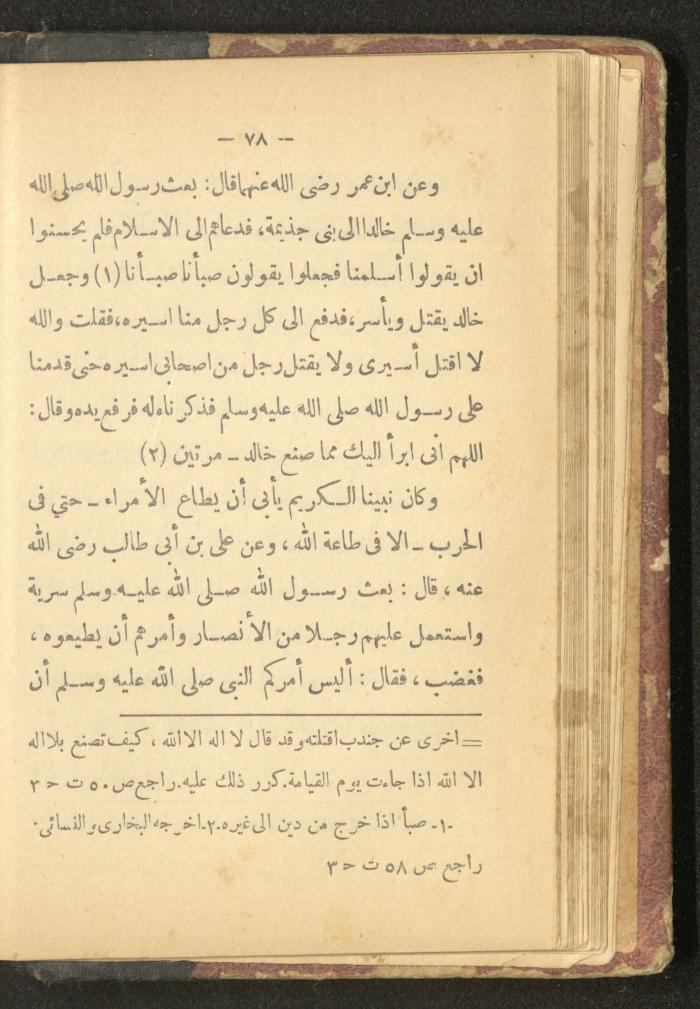 — ٧٨ —
وعن ابن عمر رضى الله عنهما قال : بعث رسول الله صلى الله
عليه وسلم خالدا الى بنى جذيمة ، فدعاهم الى الاسلام فلم يحسنوا
ان يقولوا أسلمنا فجعلوا يقولون صبأنا صبأنا (١) وجعل
خالد يقتل ويأسر ، فدفع الى كل رجل منا اسيره ، فقلت والله
لا اقتل أسيرى ولا يقتل رجل من اصحابى اسيره حتى قدمنا
على رسول الله صلى الله عليه وسلم فذكرناه له فرفع يده وقال :
اللهم انى ابرأ اليك مما صنع خالد ـ مرتين (٢)
وكان نبينا الكريم يأبى أن يطاع الأمراء ـ حتي فى
الحرب ـ الا فى طاعة الله ، وعن على بن أبى طالب رضى الله
عنه ، قال : بعث رسول الله صلى الله عليه وسلم سرية
واستعمل عليهم رجلا من الأنصار وأمرهم أن يطيعوه ،
فغضب ، فقال : أليس أمركم النبى صلى الله عليه وسلم أن
= اخرى عن جندب اقتلته وقد قال لا اله الا الله ، كيف تصنع بلا اله
الا الله اذا جاءت يوم القيامة. كرر ذلك عليه. راجع ص ٥٠ ت حـ ٣
-١- صبأ اذا خرج من دين الى غيره. ٢- اخرجه البخارى والنسائى .
راجع ص ٥٨ ت حـ ٣